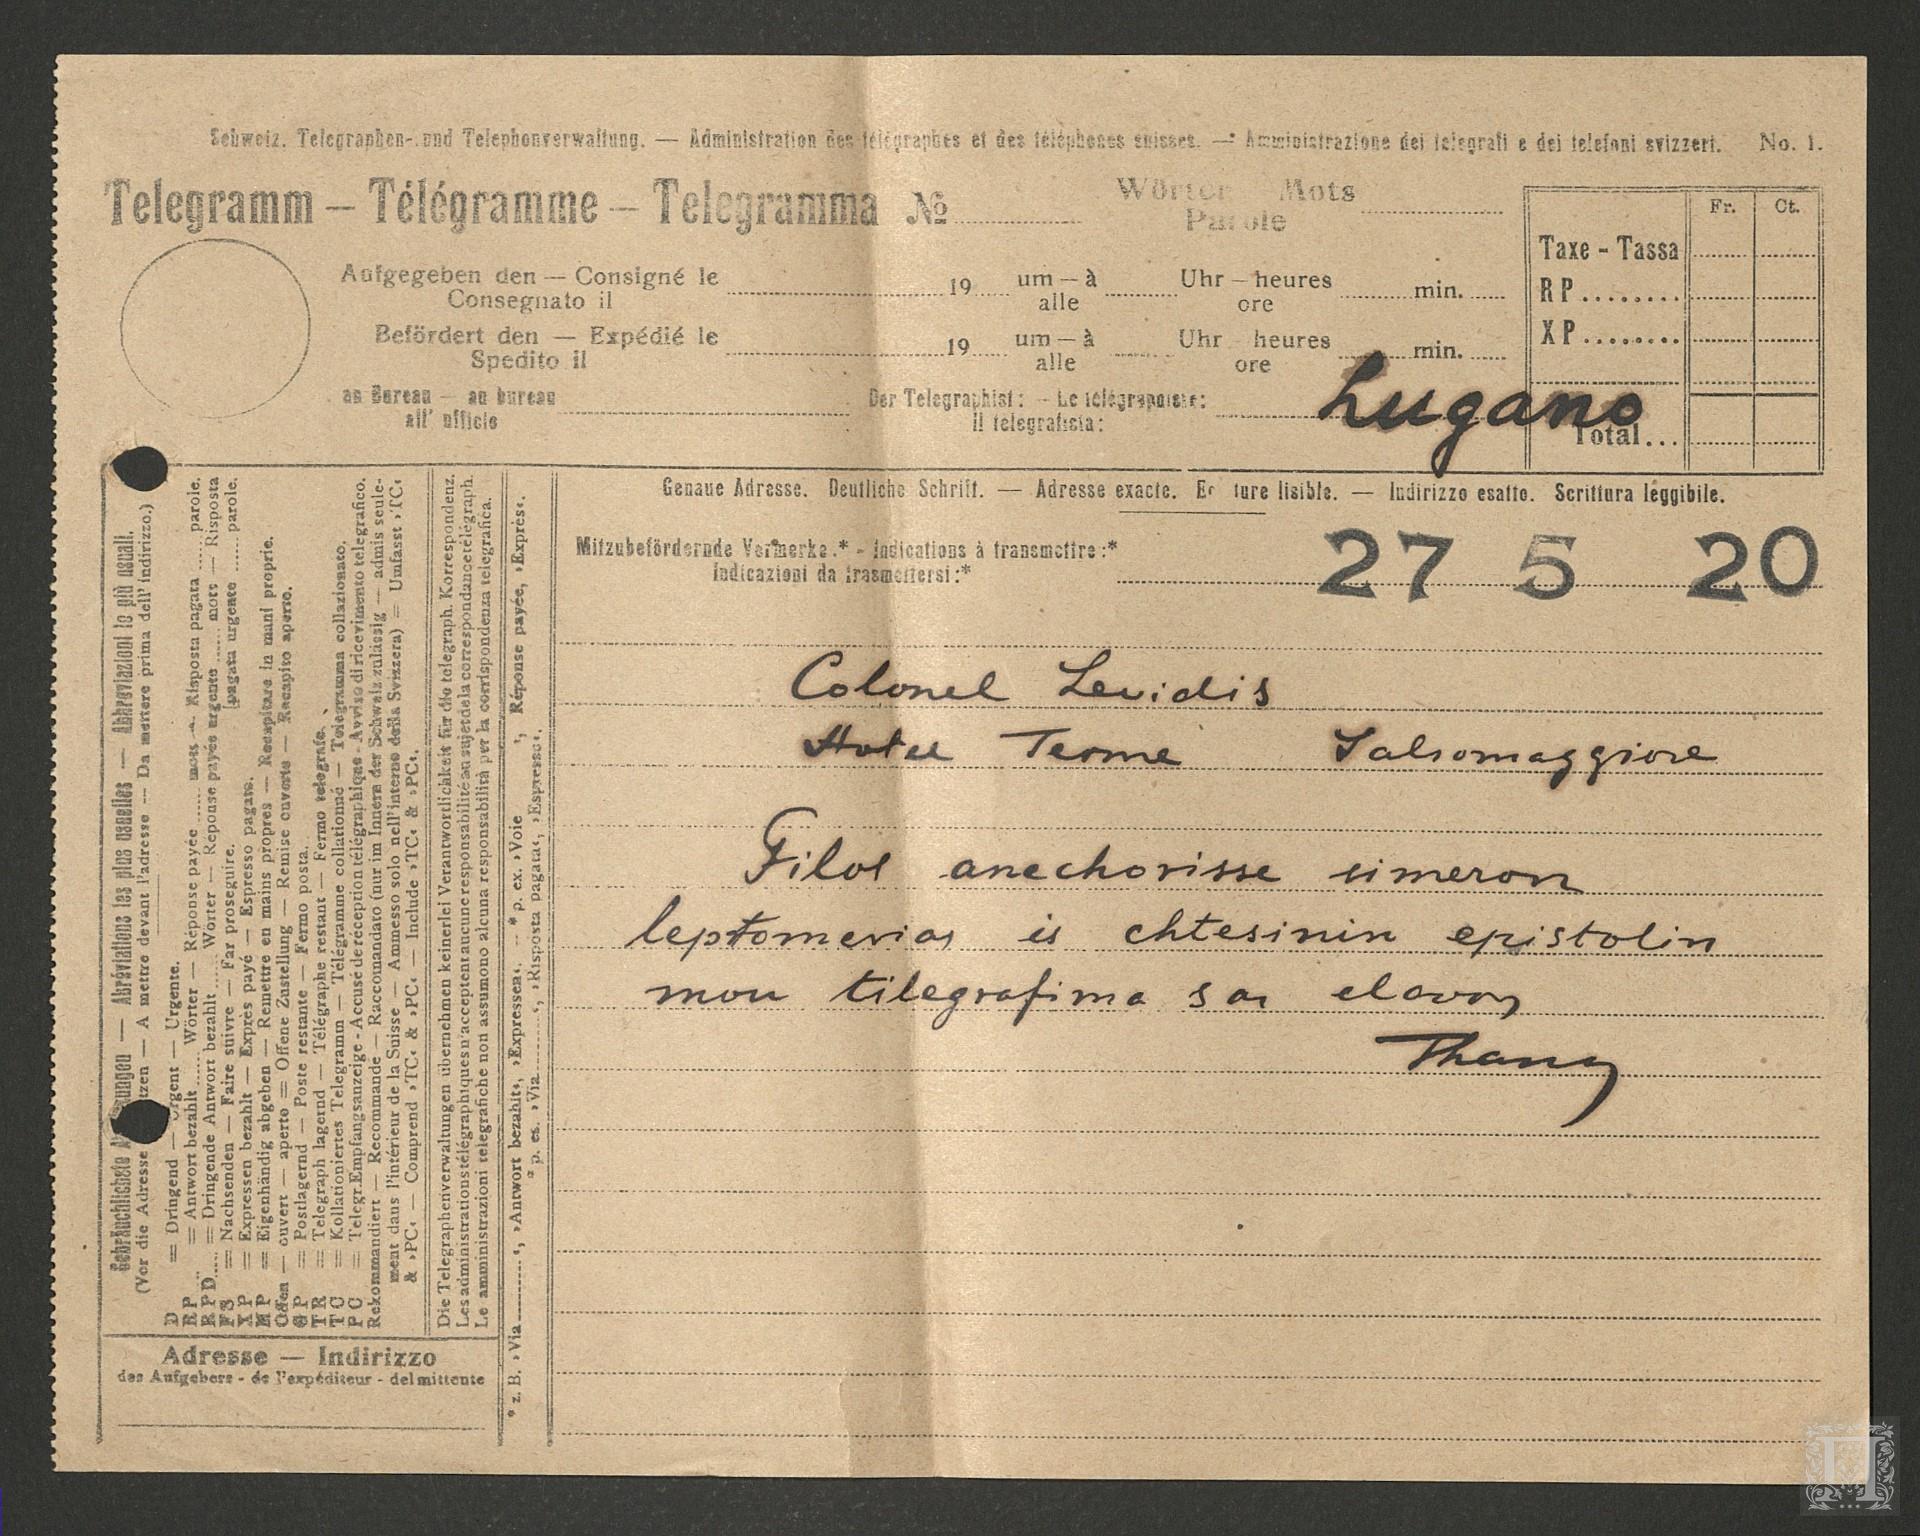 Schweiz. Telegraphen- und Telephonverwaltung. — Administration des télégraphes et des téléphones suisses. — Amministrazione dei telegrafi e dei telefoni svizzeri. No. 1.
Telegramm — Télégramme — Telegramma №
Wörter Mots
Parole
Fr. Ct.
Taxe - Tassa
RP
XP
Total
Aufgegeben den — Consigné le 19 um — à Uhr — heures min.
Consegnato il alle ore
Befördert den — Expédié le 19 um — à Uhr heures min.
Spedito il alle ore
an Bureau — au bureau Der Telegraphist: — Le télégraphiste:
all' ufficio Il telegrafista:
Lugano
Genaue Adresse. Deutliche Schrift. — Adresse exacte. Ec ture lisible. — Indirizzo esatto. Scrittura leggibile.
Mitzubefördernde Vermerke.* - Indications à transmettre:*
Indicazioni da trasmettersi:*
27 5 20
Colonel Levidis
Hotel Terme Salsomaggiore
Filos anechorisse simeron
leptomerias is chtesinin epistolin
mou tilegrafima sas elavon
Gebräuchlichste A ungen — Abréviations les plus usuelles — Abbreviazioni le più usuali.
(Vor die Adresse tzen — A mettre devant l'adresse — Da mettere prima dell' indirizzo.)
D = Dringend — Urgent — Urgente.
RP = Antwort bezahlt Wörter — Réponse payée mots — Risposta pagata parole.
RPD = Dringende Antwort bezahlt Wörter — Réponse payée urgente mots — Risposta
[pagata urgente parole.
FS = Nachsenden — Faire suivre — Far proseguire.
XP = Expressen bezahlt — Exprès payé — Espresso pagato.
MP = Eigenhändig abgeben — Remettre en mains propres — Recapitare in mani proprie.
Offen — ouvert — aperto = Offene Zustellung — Remise ouverte — Recapito aperto.
GP = Postlagernd — Poste restante — Fermo posta.
TR = Telegraph lagernd — Télégraphe restant — Fermo telegrafo.
TC = Kollationiertes Telegramm — Télégramme collationné — Telegramma collazionato.
PC = Telegr. Empfangsanzeige - Accusé de réception télégraphique - Avviso di ricevimento telegrafico.
Rekommandiert — Recommande — Raccomandato (nur im Innern der Schweiz zulässig — admis seule-
ment dans l'intérieur de la Suisse — Ammesso solo nell'interno della Svizzera) = Umfasst ›TC‹
& ›PC‹ — Comprend ›TC‹ & ›PC‹ — Include ›TC‹ & ›PC‹.
Die Telegraphenverwaltungen übernehmen keinerlei Verantwortlichkeit für die telegraph. Korrespondenz.
Les administrations télégraphiques n'acceptent aucune responsabilité au sujet de la correspondance télégraph.
Le amministrazioni telegrafiche non assumono alcuna responsabilità per la corrispondenza telegrafica.
* z. B. ›Via ‹, ›Antwort bezahlt‹, ›Expressen‹. — * p. ex. ›Voie ‹, Réponse payée, ›Exprès‹.
* p. es. ›Via ‹, ›Risposta pagata‹, ›Espresso‹.
Adresse — Indirizzo
des Aufgebers - de l'expéditeur - del mittente